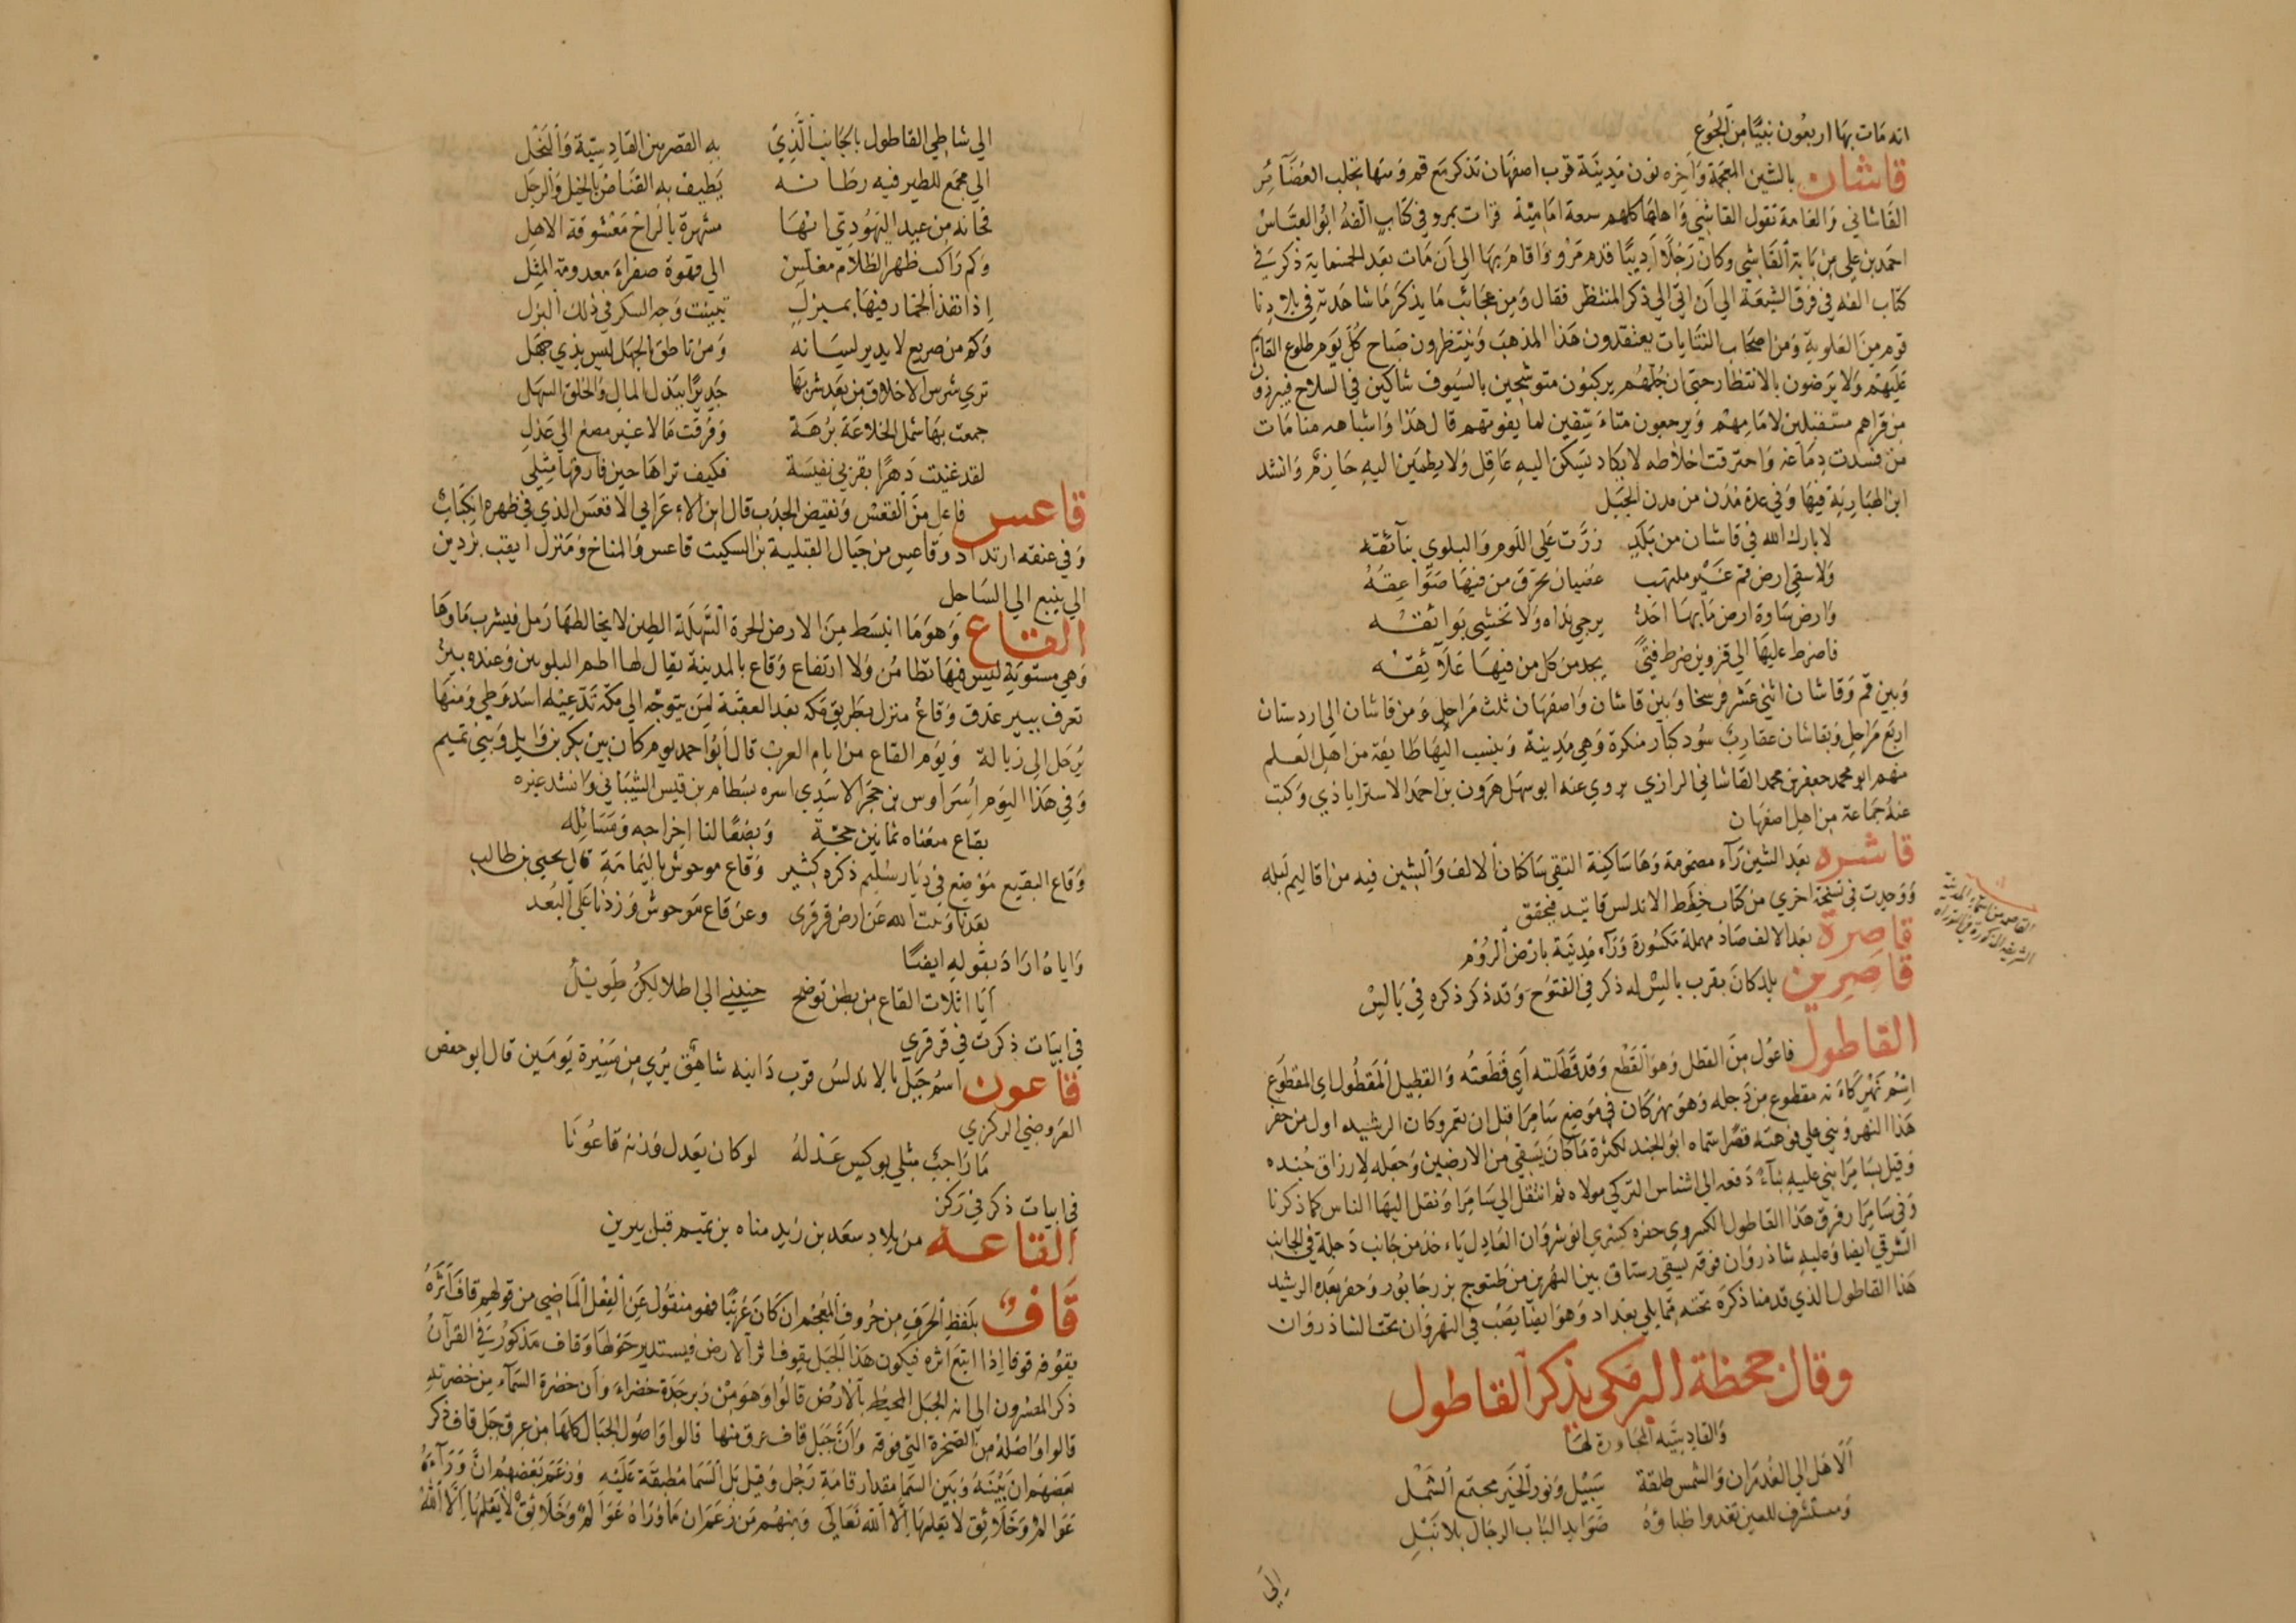 انه مات بها اربعون نبيًا من الجوع
قاشان بالشين المعجمة وآخره نون مدينة قرب اصفهان تذكر مع قم ومنها تجلب الغضائر
القاشاني والعامة تقول القاشي واهلها كلهم شيعة امامية قرات بمرو في كتاب الفهُ ابو العباس
احمد بن علي بن بابة القاشي وكان رجلًا اديبًا قدم مرو واقام بها الى ان مات بعد الخمسماية ذكر في
كتاب الفه في فرق الشيعة الي ان اتي الي ذكر المنتظر فقال ومن عجائب ما يذكر ما شاهدته في بلادنا
قوم من العلوية ومن اصحاب التنايات يعتقدون هذا المذهب وينتظرون صباح كل يوم طلوع القائم
عليهم ولا يرضون بالانتظار حتى ان جلهم يركبون متوشحين بالسيوف شاكين في السلاح فيبرزون
من قراهم مستقبلين لامامهم ويرجعون متاسفين لما يفوتهم قال هذا واشباهه منامات
من فسدت دماغه واحترقت اخلاطه لا يكاد يسكن اليه عاقل ولا يطمين اليه حازم وانشد
ابن الهبارية فيها وفي عدة مدن من مدن الجبل
لا بارك الله في قاشان من بلد زرّت علي اللوم والبلوي بنآئقه
ولا سقي ارض قم غير ملتهب غضبان تحرق من فيها صواعقُهُ
وارض ساوة ارض ما بها احد يرجي نداه ولا تخشي بوائقه
فاضرط عليها الي قزوين ضرط فتيً يجد من كل من فيها علآئقه
وبين قم وقاشان اثني عشر فرسخا وبين قاشان واصفهان ثلث مراحل ومن قاشان الى اردستان
اربع مراحل وبقاشان عقارب سود كبار منكرة وهي مدينة وينسب اليها طايفة من اهل العلم
منهم ابو محمد جعفر بن محمد القاشاني الرازي يروي عنه ابو سهل هرون بن احمد الاستراباذي وكتب
عنه جماعة من اهل اصفهان
قاشره بعد الشين رآء مضمومة وها ساكنة التقي ساكنان الالف والشين فيه من اقاليم لبله
ووجدت في نسخة اخري من كتاب خطط الاندلس قاتيد فيحقق
قاصرة بعد الالف صاد مهملة مكسورة ورآء مدينة بارض الروم
القاصرمن اسماء المدينة
الشريفه المذكورة في التوراه
قاصرين بلد كان بقرب بالس له ذكر في الفتوح وقد ذكر ذكره في بالس
القاطول فاعول من القطل وهو القطع وقد قطلته اي قطعته والقطيل المقطول اي المقطوع
اسم نهر كاءنه مقطوع من دجله وهو نهر كان في موضع سامرا قبل ان تعمر وكان الرشيد اول من حفر
هذا النهر وبني علي فوهته قصرًا سماه ابو الجند لكثرة ما كان يسقي من الارضين وجعله لارزاق جنده
وقيل بسامرا بني عليه بناءً دفعه الي اشناس التركي مولاه ثم انتقل الي سامرا ونقل اليها الناس كما ذكرنا
وفي سامرا وفوق هذا القاطول الكسروي حفره كسري انوشروان العادل ياءخذ من جانب دجلة في الجانب
الشرقي ايضا وعليه شاذروان فوقه يسقي رستاق بين النهرين من طسوج بزرجابور وحفر بعده الرشيد
هذا القاطول الذي قدمنا ذكره تحته مما يلي بغداد وهو ايضا يصب في النهروان تحت الشاذروان
وقال جحظة البرمكي يذكر القاطول
والقادسيه المجاورة لها
الا هل الي الغدران والشمس طلقة سبيل ونور الخير مجتمع الشمل
ومستشرف للعين تغدوا ظباؤه صوايد الباب الرجال بلا نبل
الى
الي شاطي القاطول بالجانب الذي به القصر بين القادسية والنخل
الي مجمع للطير فيه رطانه يطيف به القناص بالخيل والرجل
فحانه من عبد اليهودي انها مشهرة بالراح معشوقة الاهل
وكم راكب ظهر الظلام مغلس الي قهوة صفراء معدومة المثل
اذا نفذ الخمار فيها بمبزل تبينت وجه السكر في ذلك البزل
وكم من صريع لا يدير لسانه ومن ناطق بالجهل ليس بذي جهل
تري شرس الاخلاق من بعد شربها جديرًا ببذل المال والخلق السهل
جمعت بها شمل الخلاعة برهة وفرقت مالا غير مصغ الي عذل
لقد غنيت دهرًا بقربي نفيسة فكيف تراها حين فارقها مثلي
قاعس فاعل من القعس ونقيض الحدب قال ابن الاءعرابي الاقعس الذي في ظهره انكباب
وفي عنقه ارتداد وقاعس من جبال القبلية بن السكيت قاعس والمناخ ومنزل ايقب يزدين
الي ينبع الي الساحل
القاع وهو ما انبسط من الارض الحرة السهلة الطين لا يخالطها رمل فيشرب ماوها
وهي مستوية ليس فيها تطامن ولا ارتفاع وقاع بالمدينة يقال لها اطم البلويين وعنده بير
تعرف ببير عذق وقاع منزل بطريق مكه بعد العقبة لمن يتوجه الى مكة تدعيه اسد وطي ومنها
يرحل الى زبالة ويوم القاع من ايام العرب قال ابو احمد يوم كان بين بكر بن وايل وبني تميم
وفي هذا اليوم أُسر اوس بن حجر الاسدي اسره بسطام بن قيس الشيباني وانشد غيره
بقاع منعناه ثمانين حجة وبضعًا لنا اخراجه ومسائله
وقاع البقيع موضع في ديار سليم ذكره كثير وقاع موحوش باليمامة قال يحيى بن طالب
بعدنا وبيت الله عن ارض قرقري وعن قاع موحوش وزدنا علي البعد
واياه اراد بقوله ايضًا
ايا اثلات القاع من بطن توضح حنيني الى اطلالكن طويل
في ابيات ذكرت في قرقري
قاعون اسم جبل بالاندلس قرب دانيه شاهق يري من مسيرة يومين قال ابو حفص
العروضي الركزي
ما راجب مثلي بوكيس عذله لو كان يعدل وزنه قاعونا
في ابيات ذكر في ركز
القاعه من بلاد سعد بن زيد مناه بن تميم قبل يبرين
قاف بلفظ الحرف من حروف المعجم ان كان عربيًا فهو منقول عن الفعل الماضي من قولهم قاف اثره
يقوفه قوفا اذا اتبع اثره فيكون هذا الجبل يقوف اثر الارض فيستدير حولها وقاف مذكور في القرآن
ذكر المفسرون الي انه الجبل المحيط بالارض قالوا وهو من زبرجدة خضراء وان خضرة السمآء من خضرته
قالوا واصله من الصخرة التي فوقه وان جبل قاف عرق منها قالوا واصول الجبال كلها من عرق جبل قاف ذكر
بعضهم ان بينه وبين السما مقدار قامة رجل وقيل بل السما مطبقة عليه وزعم بعضهم ان ورآءه
عوالم وخلائق لا يعلمها الا الله تعالى ومنهم من زعم ان ما وراه عوالم وخلائق لا يعلمها الا الله